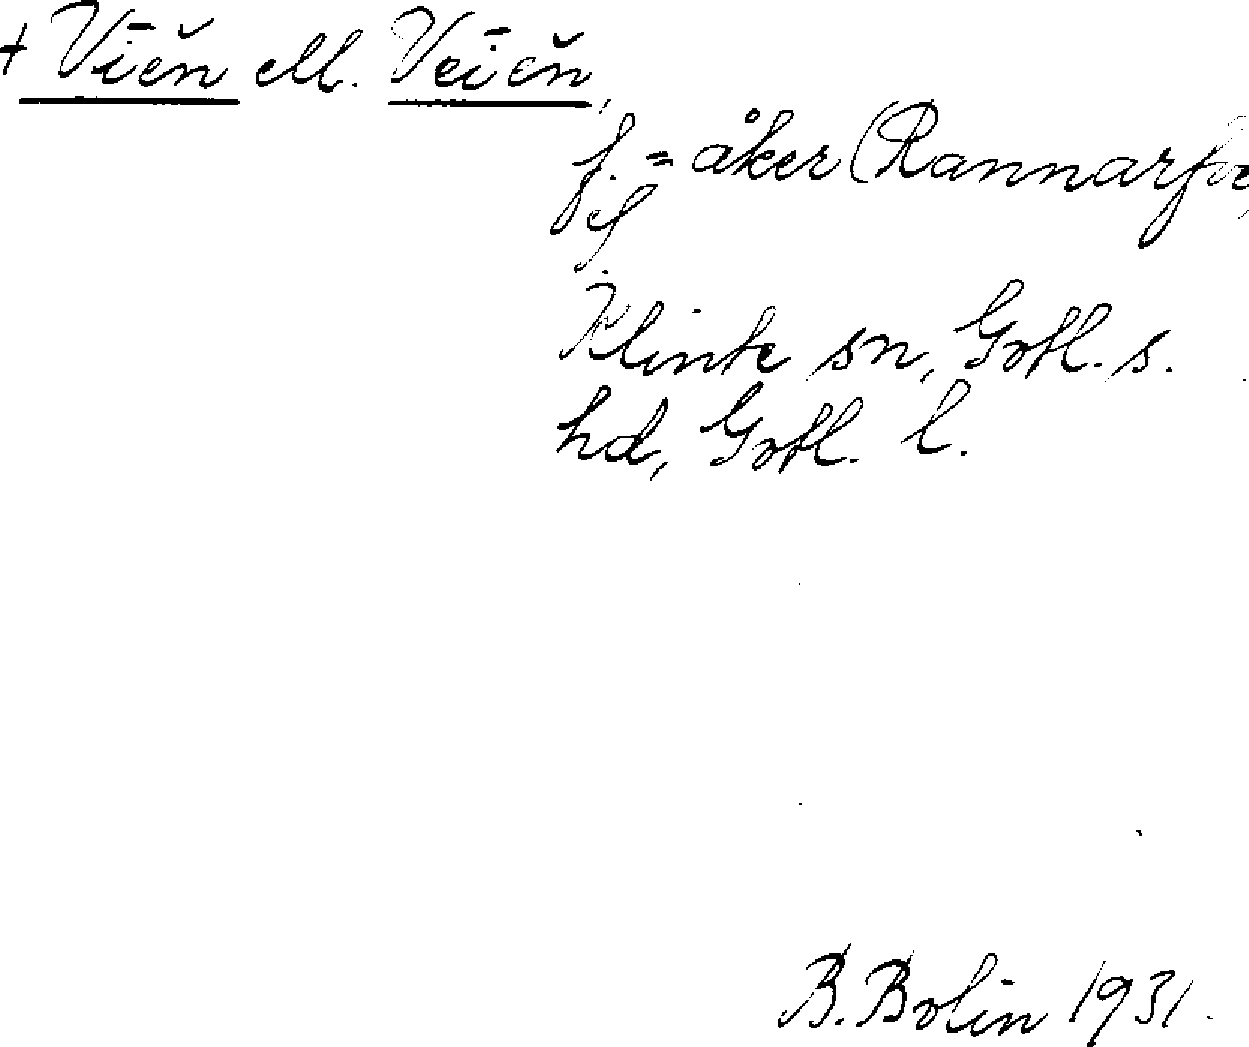 + Vīĕn ell. Veīĕn,
f. = åker (Rannarfve,
Klinte sn, Gotl. s.
hd, Gotl. l.
B. Bolin 1931.